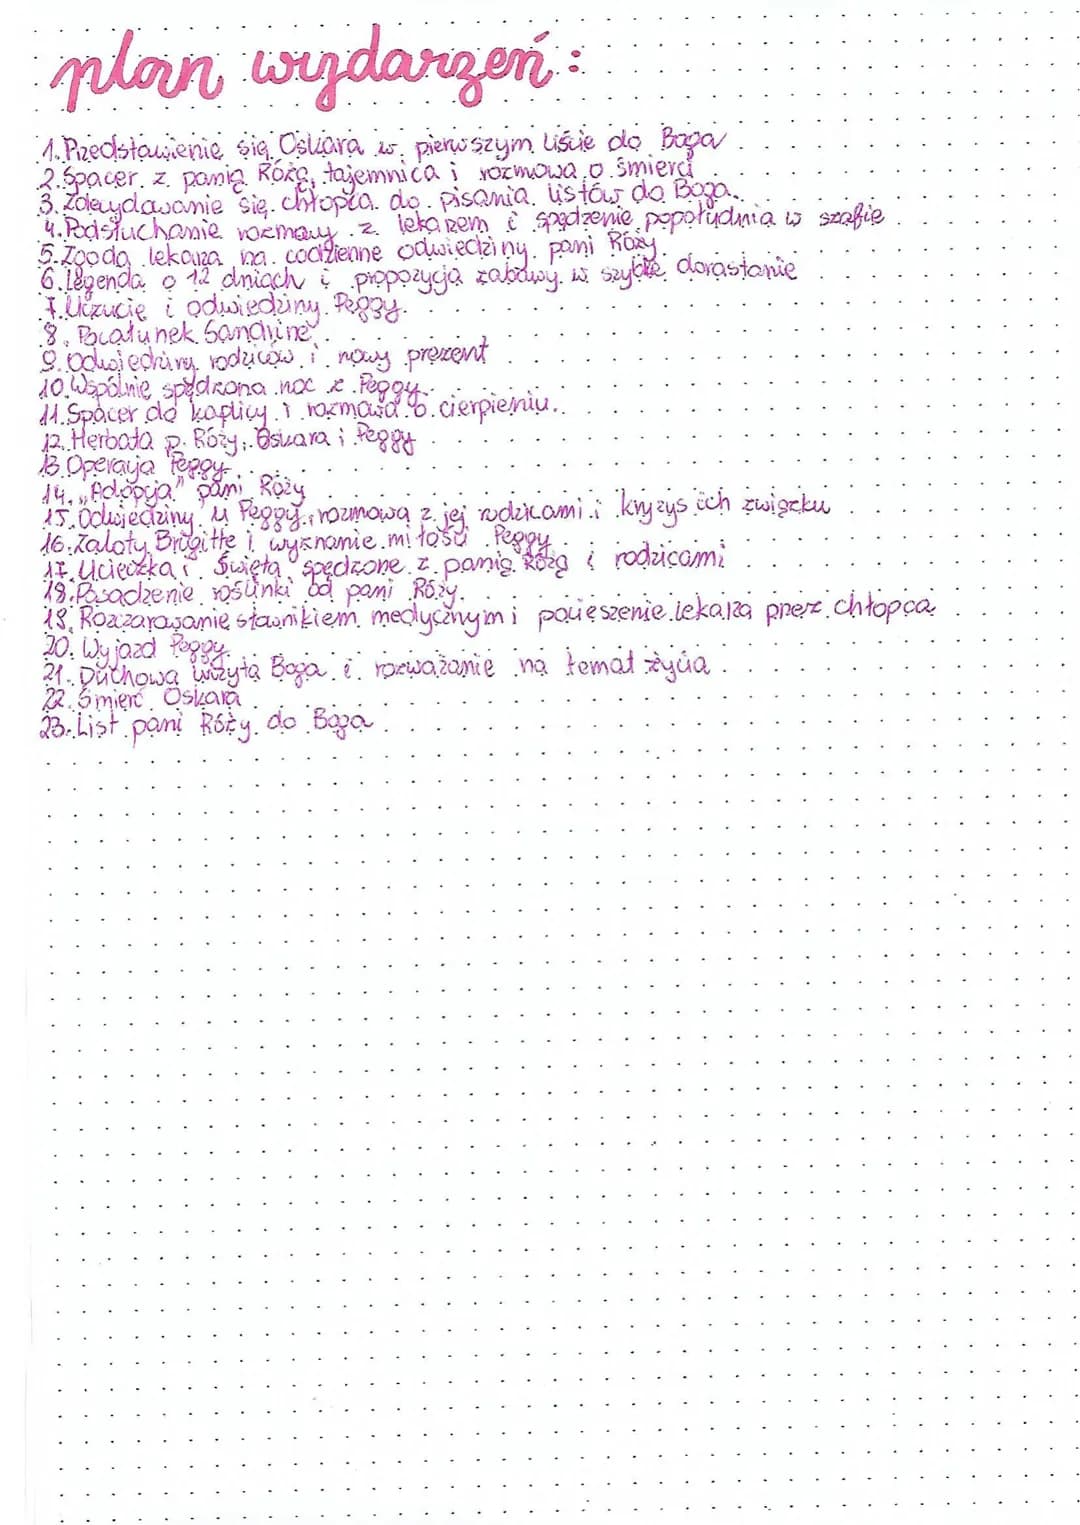 plan wydarzeń:
1. Przedstawienie się Oskara w pierwszym liście do Boga
2. Spacer z panią Różą, tajemnica i rozmowa o śmierci
3. Zdecydowanie się chłopca do pisania listów do Boga.
4. Podsłuchanie rozmowy z lekarzem i spędzenie popołudnia w szafie
5. Zgoda lekarza na codzienne odwiedziny pani Róży.
6. Legenda o 12 dniach i propozycja zabawy w szybkie dorastanie
7. Uczucie i odwiedziny Peggy.
8. Pocałunek Sandrine
9. Odwiedziny rodziców i nowy prezent
10. Wspólnie spędzona noc z Peggy.
11. Spacer do kaplicy i rozmowa o cierpieniu.
12. Herbata p. Róży, Oskara i Peggy
13. Operacja Peggy
14. „Adopcja" pani Róży
15. Odwiedziny u Peggy, rozmowa z jej rodzicami i kryzys ich związku
16. Zaloty Brigitte i wyznanie miłości Peggy.
17. Ucieczka i Święta spędzone z panią Różą i rodzicami
18. Posadzenie roślinki od pani Róży.
19. Rozczarowanie słownikiem medycznym i pocieszenie lekarza przez chłopca
20. Wyjazd Peggy
21. Duchowa wizyta Boga i rozważanie na temat życia
22. Śmierć Oskara
23. List pani Róży do Boga